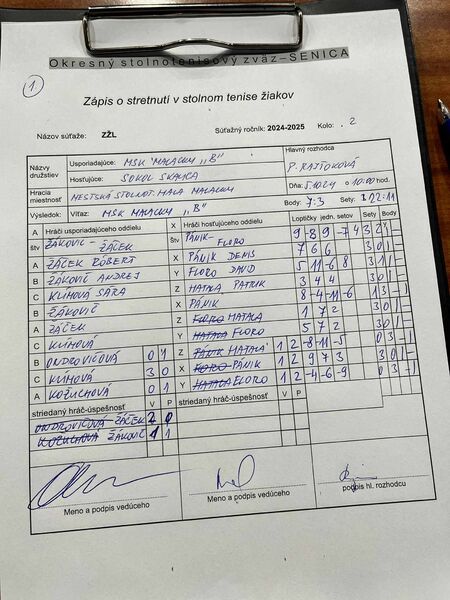 Okresný stolnotenisový zväz–SENICA
1
Zápis o stretnutí v stolnom tenise žiakov
Názov súťaže: ZŽL Súťažný ročník: 2024-2025 Kolo: . 2
Názvy družstiev
Usporiadajúce: MŠK MALACKY „B"
Hosťujúce: SOKOL SKALICA
Hlavný rozhodca
P. RAJTOKOVÁ
Hracia miestnosť
MESTSKÁ STOLNOT. HALA MALACKY
Dňa: 5.10.24 o 10:00 hod.
Výsledok: Víťaz: MŠK MALACKY „B" Body: 7:3 Sety: 22:11
A Hráči usporiadajúceho oddielu X Hráči hosťujúceho oddielu Loptičky jedn. setov Sety Body
štv ŽÁKOVIČ - ŽÁČEK Štv PÁNIK - FLORO 9 -8 9 -7 4 3 2 1 -
A ŽÁČEK RÓBERT X PÁNIK DENIS 7 6 6 3 0 1 -
B ŽÁKOVIČ ANDREJ Y FLORO DAVID 5 11 -6 8 3 1 1 -
C KLIMOVÁ SÁRA Z HATALA PATRIK 3 4 4 3 0 1 -
B ŽÁKOVIČ X PÁNIK 8 -4 -11 -6 1 3 - 1
A ŽÁČEK Z FLORO HATALA 1 7 2 3 0 1 -
C KLIMOVÁ Y HATALA FLORO 5 7 2 3 0 1 -
B ONDROVIČOVÁ 0 1 Z PÁNIK HATALA 1 2 -8 -11 -5 0 3 - 1
C KLIMOVÁ 3 0 X FLORO PÁNIK 1 2 9 7 3 3 0 1 -
A KOŽUCHOVÁ 0 1 Y HATALA FLORO 1 2 -4 -6 -9 0 3 - 1
striedaný hráč-úspešnosť V P striedaný hráč-úspešnosť V P
ONDROVIČOVÁ ŽÁČEK 2 0
KOŽUCHOVÁ ŽÁKOVIČ 1 1
Meno a podpis vedúceho
Meno a podpis vedúceho
podpis hl. rozhodcu